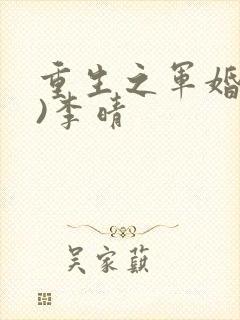 重生之军婚
)李晴
吴家蓺